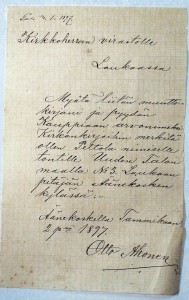 Kirkkoherran virastolle
Laukaassa
Myötä liitän muutto-
kirjani ja pyydän
Kauppiaan arvonimeä
Kirkonkirjoihin merkitä
ollen Peltola nimisellä
tontilla Uuden Talon
maalla No 3. Laukaan
pitäjän Äänekosken
kylässä.
Äänekoskella Tammikuun
2 p:nä 1897
Otto Ahonen